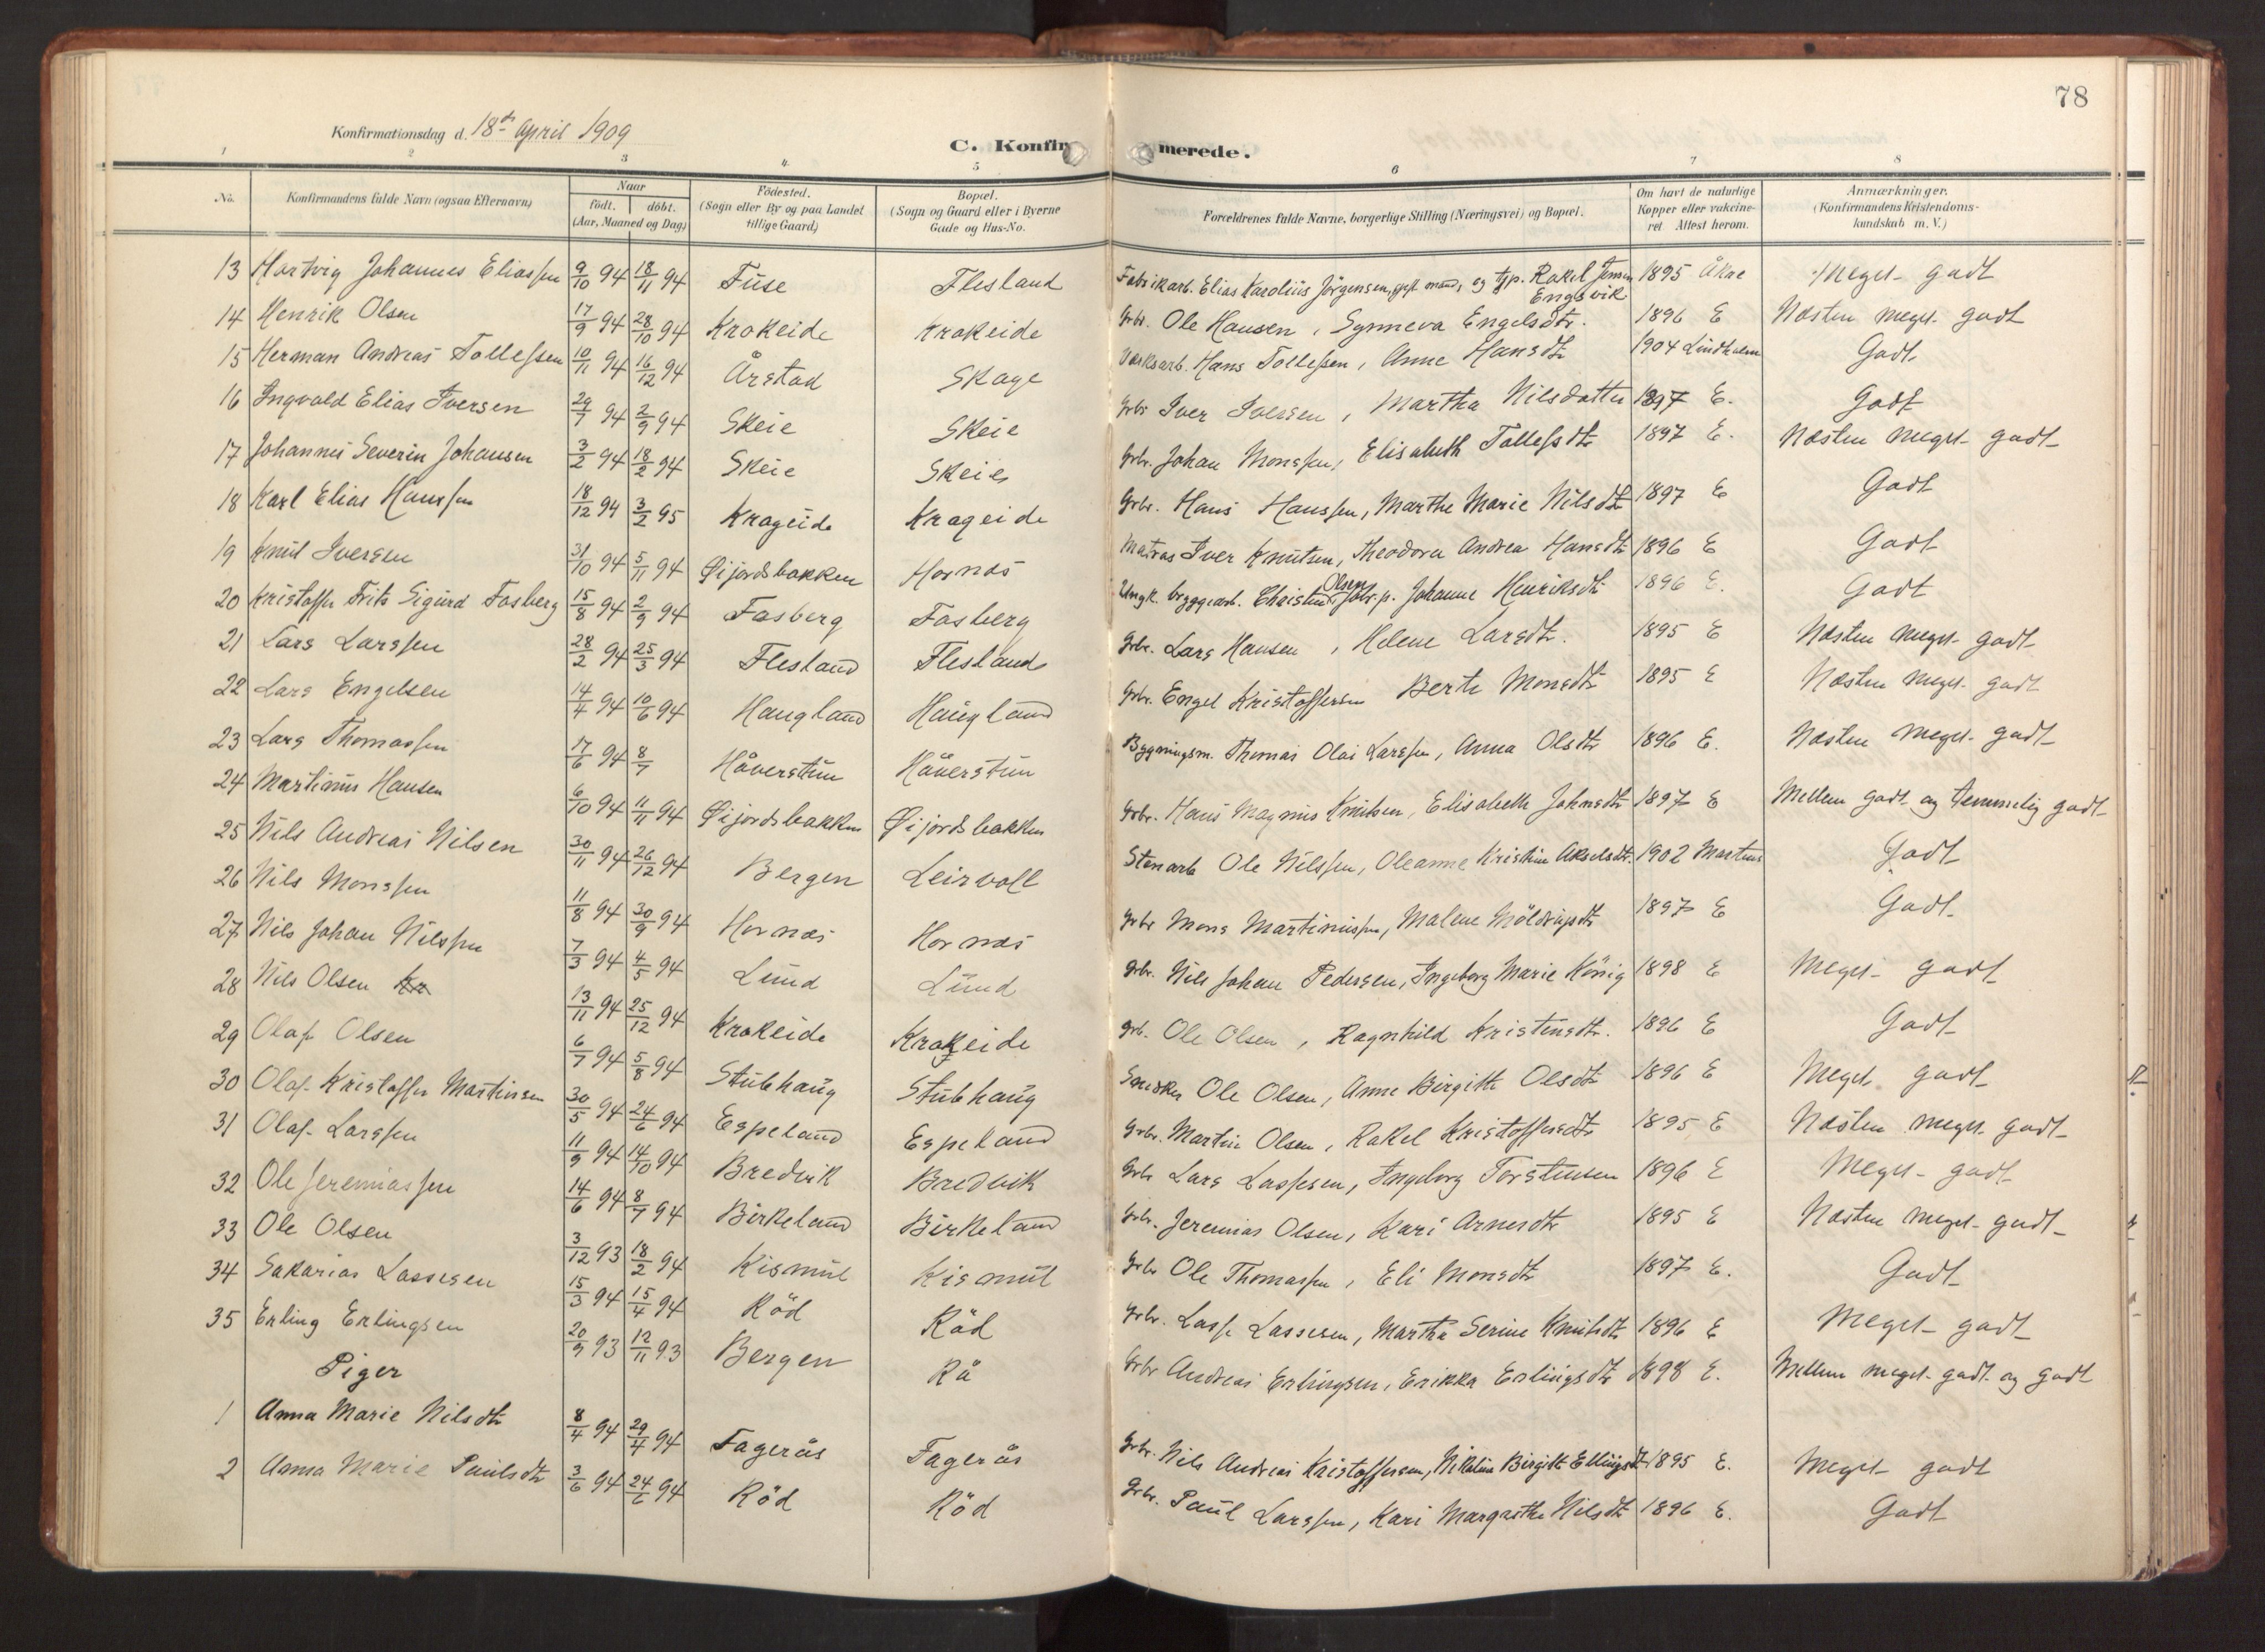 78
Konfirmationsdag d. 18de April 1909
C. Konfirmerede.
1 2 3 4 5 6 7 8
No. Konfirmandens fulde Navn (ogsaa Efternavn) Naar födt. döbt. (Aar, Maaned og Dag) Födested. (Sogn eller By og paa Landet tillige Gaard) Bopæl. (Sogn og Gaard eller i Byerne Gade og Hus-No. Forældrenes fulde Navne, borgerlige Stilling (Næringsvei) og Bopæl. Om havt de naturlige Kopper eller vakcineret Attest herom. Anmærkninger. (Konfirmandens Kristendomskundskab m. V.)
13 Hartvig Johannes Eliassen 9/10 94 18/11 94 Fuse Flesland Fabrikarb. Elias Karolius Jörgensen, gift mand, og tjp. Rakel Jensen Engevik 1895 Åkre Meget godt
14 Henrik Olsen 17/9 94 28/10 94 Krokeide Krokeide Grbr. Ole Hansen, Synneva Engelsdtr. 1896 E Næsten meget godt
15 Herman Andreas Tollefsen 10/11 94 16/12 94 Årstad Skage Værksarb. Hans Tollefsen, Anne Hansdtr 1904 Lindholm Godt
16 Ingvald Elias Iversen 29/7 94 2/9 94 Skeie Skeie Grbr Iver Iversen, Martha Nilsdatter 1897 E. Godt
17 Johannes Severin Johansen 3/2 94 18/2 94 Skeie Skeie Grbr. Johan Monssen, Elisabeth Tollefsdtr 1897 E. Næsten meget godt
18 Karl Elias Hanssen 18/12 94 3/2 95 Krageide Krageide Grbr. Hans Hanssen, Marthe Marie Nilsdtr 1897 E Godt
19 Knut Iversen 31/10 94 5/11 94 Øijordsbakken Hornæs Matros Iver Knutsen, Theodora Andrea Hansdtr 1896 E Godt
20 Kristoffer Frits Sigurd Fasberg 15/8 94 2/9 94 Fasberg Fasberg Ungk. bryggearb. Christen Olsen, p. Johanne Henriksdtr 1896 E. Godt
21 Lars Larssen 28/2 94 25/3 94 Flesland Flesland Grbr. Lars Hansen, Helene Larsdtr. 1895 E Næsten meget godt
22 Lars Engelsen 14/4 94 10/6 94 Haugland Haugland Grbr. Engel Kristoffersen Berte Monsdtr 1895 E Næsten meget godt
23 Lars Thomassen 17/6 94 8/7 Håverstun Håverstun Bygningsm. Thomas Olai Larssen, Anna Olsdtr 1896 E. Næsten meget godt
24 Martinus Hansen 6/10 94 11/11 94 Øijordsbakken Øijordsbakken Grbr. Hans Magnus Knutsen, Elisabeth Johnsdtr 1897 E Mellem godt og temmelig godt
25 Nils Andreas Nilsen 30/11 94 26/12 94 Bergen Leirvoll Stenarb Ole Nilssen, Oleanne Kristine Akselsdtr. 1902 Martens Godt
26 Nils Monssen 11/8 94 30/9 94 Hornæs Hornæs Grbr Mons Martinussen, Malene Möldrupsdtr 1897 E Godt
27 Nils Johan Nilssen 7/3 94 4/5 94 Lund Lund Grbr. Nils Johan Pedersen, Ingeborg Marie König 1898 E Meget godt
28 Nils Olsen Kr 13/11 94 25/12 94 Krokeide Krokeide Grb. Ole Olsen, Ragnhild Kristensdtr. 1896 E Godt
29 Olaf Olsen 6/7 94 5/8 94 Stubhaug Stubhaug Snedker Ole Olsen, Anne Birgitte Olsdtr 1896 E Meget godt
30 Olaf Kristoffer Martinsen 30/5 94 24/6 94 Espeland Espeland Grbr. Martin Olsen, Rakel Kristoffersdtr 1895 E Næsten meget godt
31 Olaf Larssen 11/9 94 14/10 94 Bredvik Bredvik Grbr Lars Lassesen, Ingeborg Torstensen 1896 E Meget godt
32 Ole Jeremiassen 14/6 94 8/7 94 Birkeland Birkeland Grbr. Jeremias Olsen, Kari Arnesdtr 1895 E Næsten meget godt
33 Ole Olsen 3/12 93 18/2 94 Kismul Kismul Grbr Ole Thomassen, Eli Monsdtr 1897 E. Godt
34 Sakarias Lassesen 15/3 94 15/4 94 Röd Röd Grbr. Lasse Lassesen, Martha Serine Knutsdtr 1896 E Meget godt
35 Erling Erlingsen 20/9 93 12/11 93 Bergen Rå Grbr Andreas Erlingsen, Erikka Erlingsdtr 1898 E. Mellem meget godt og godt
Piger
1 Anna Marie Nilsdtr 8/4 94 29/4 94 Fagerås Fagerås Grbr. Nils Andreas Kristoffersen, Nikoline Birgitte Ellingsdtr 1895 E. Meget godt
2 Anna Marie Paulsdtr 3/6 94 24/6 94 Röd Röd Grbr. Paul Larssen, Kari Margrethe Nilsdtr 1896 E. Godt